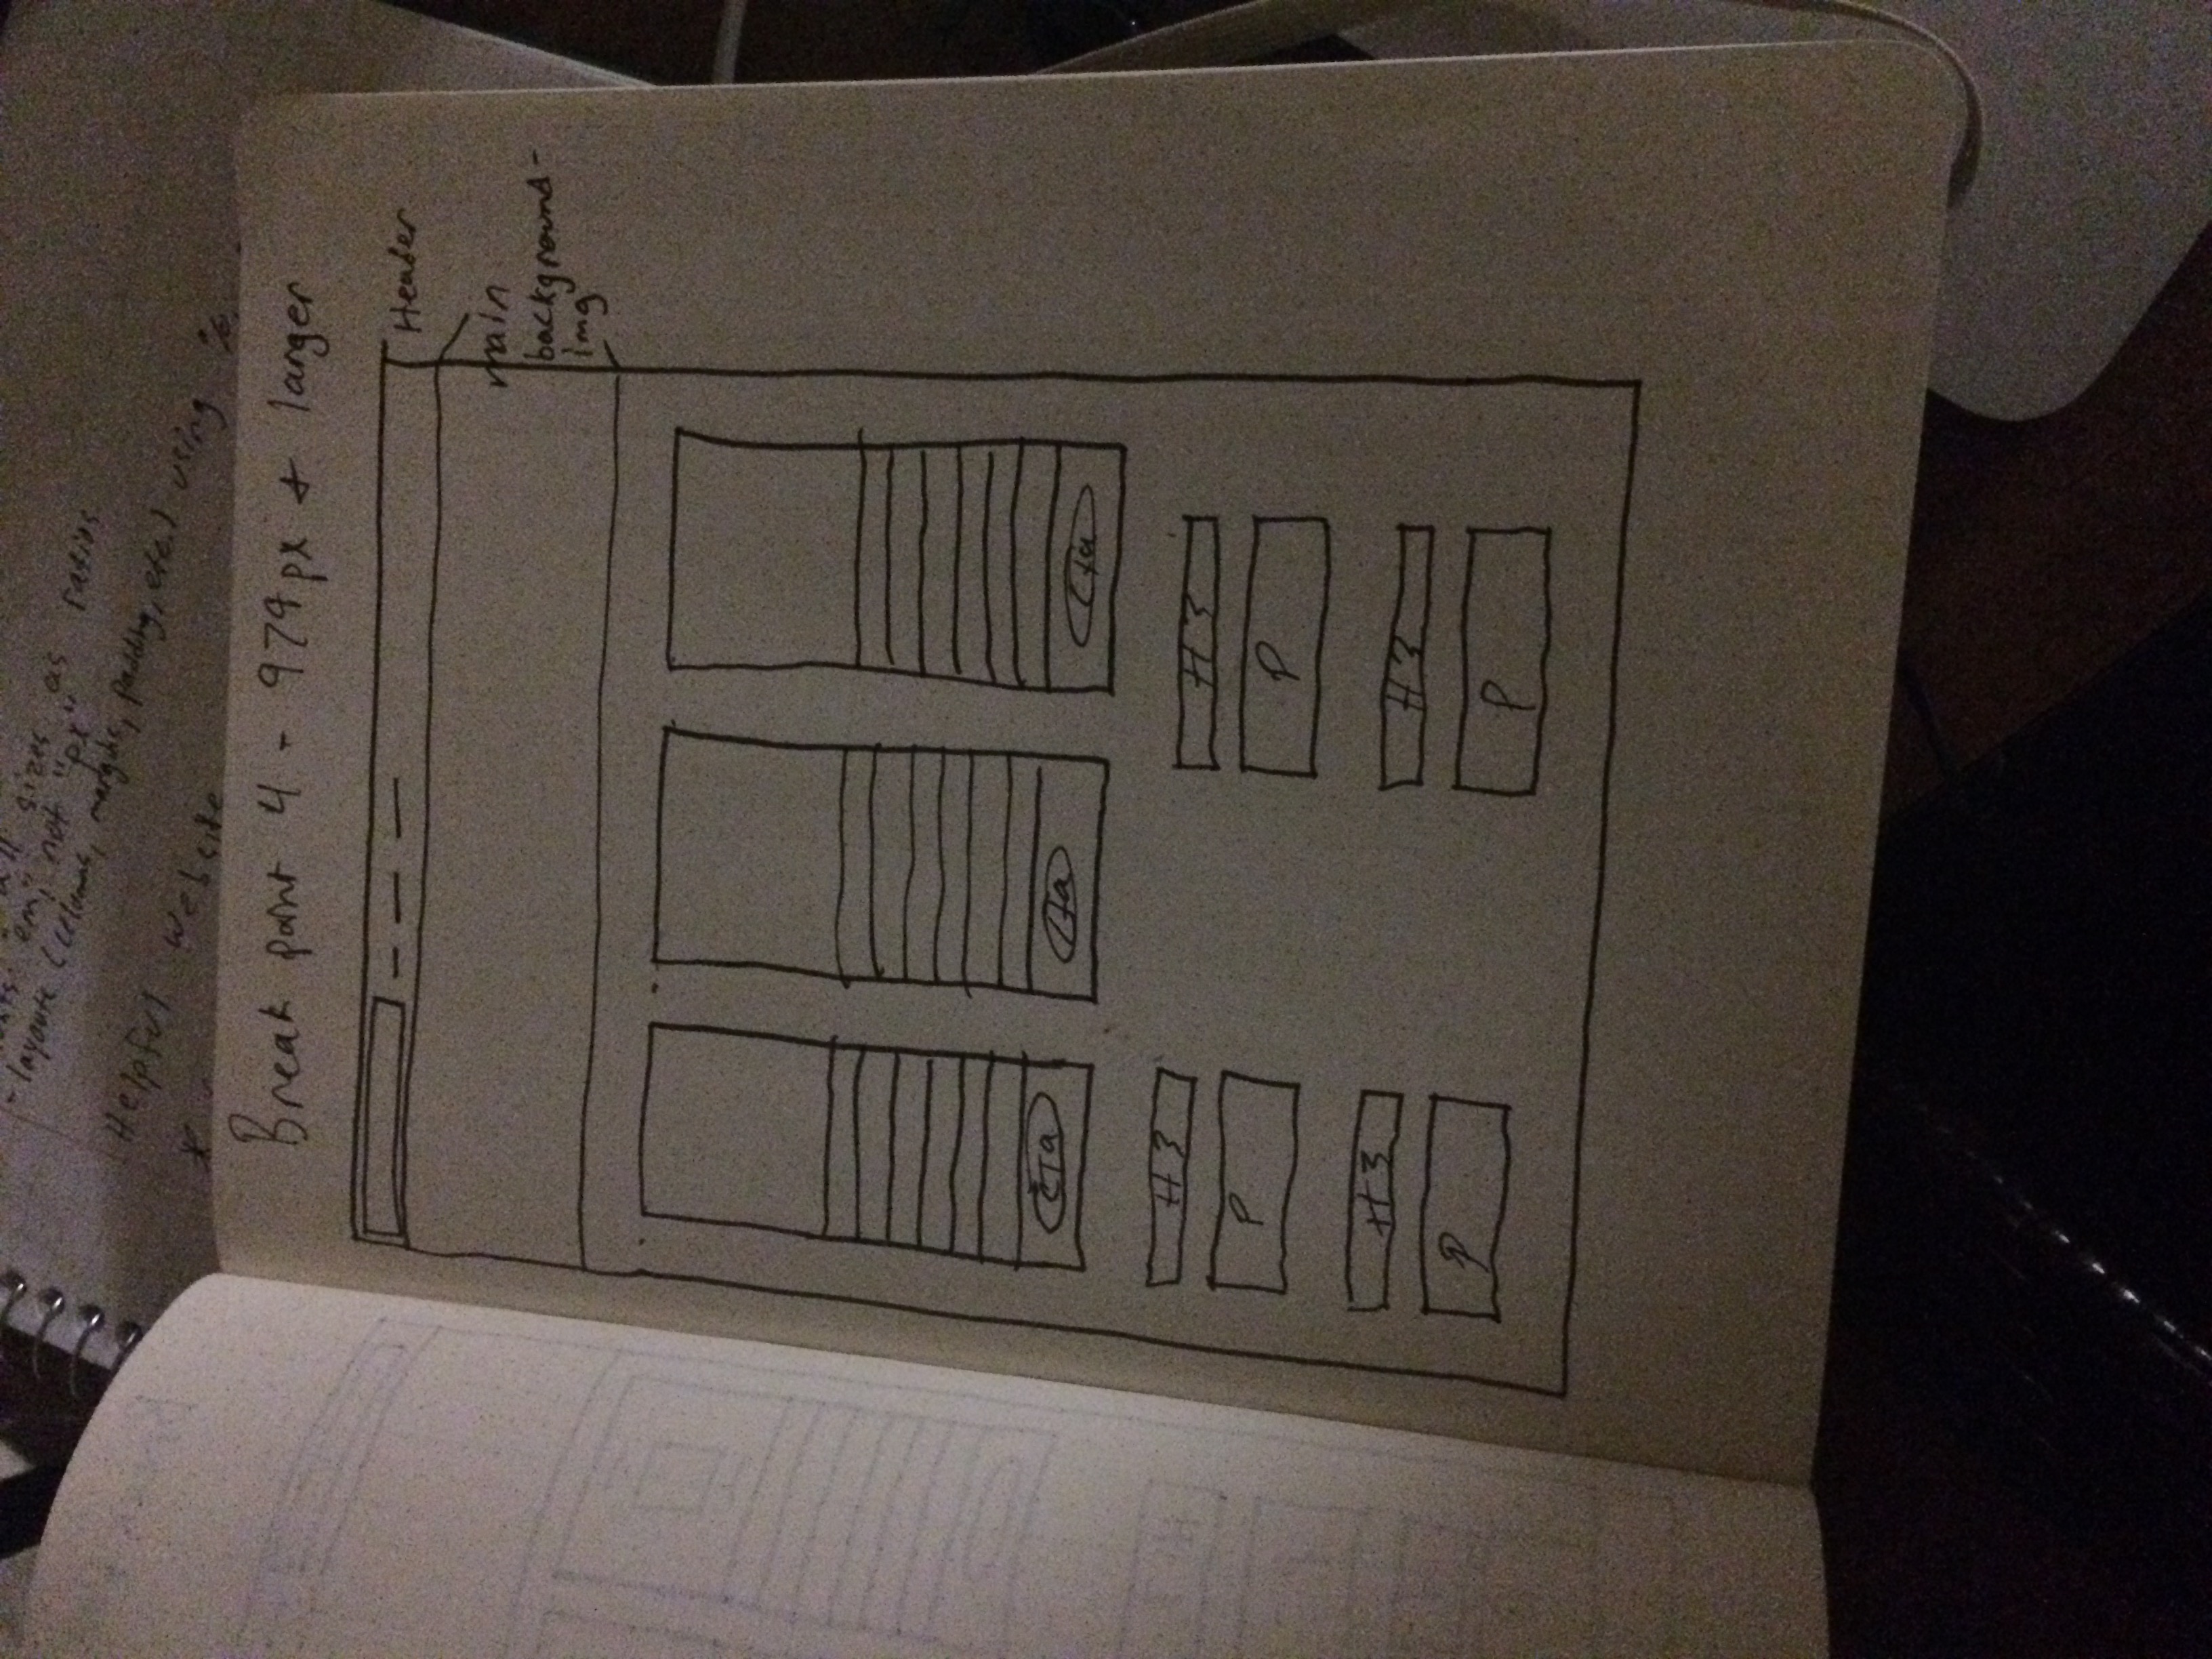 sizes as ratios
"em" not "px"
- layouts (columns, margins, padding, etc.) using %.
Helpful website
*
Break point 4 - 979px + larger
Header
main
background-
img
CTa
Cta
Cta
H3
H3
P
P
H3
H3
P
P